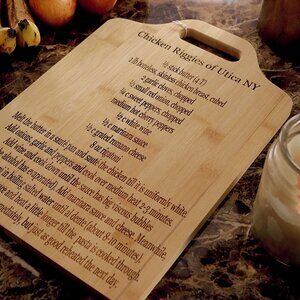 Chicken Riggies of Utica NY
½ stick butter (4 T)
1 lb boneless, skinless chicken breast, cubed
2 garlic cloves, chopped
½ small red onion, chopped
¼ c sweet peppers, chopped
medium hot cherry peppers
½ c white wine
½ c marinara sauce
½ c grated romano cheese
8 oz rigatoni
Melt the butter in a sauté pan and sauté the chicken till it is uniformly white.
Add onions, garlic and peppers and cook over medium heat 2-3 minutes.
Add wine and cook down until the sauce has big viscous bubbles
alcohol has evaporated). Add marinara sauce and cheese. Meanwhile,
in boiling salted water until al dente (about 8-10 minutes.)
and heat a little longer till the pasta is cooked through.
immediately, but just as good reheated the next day.